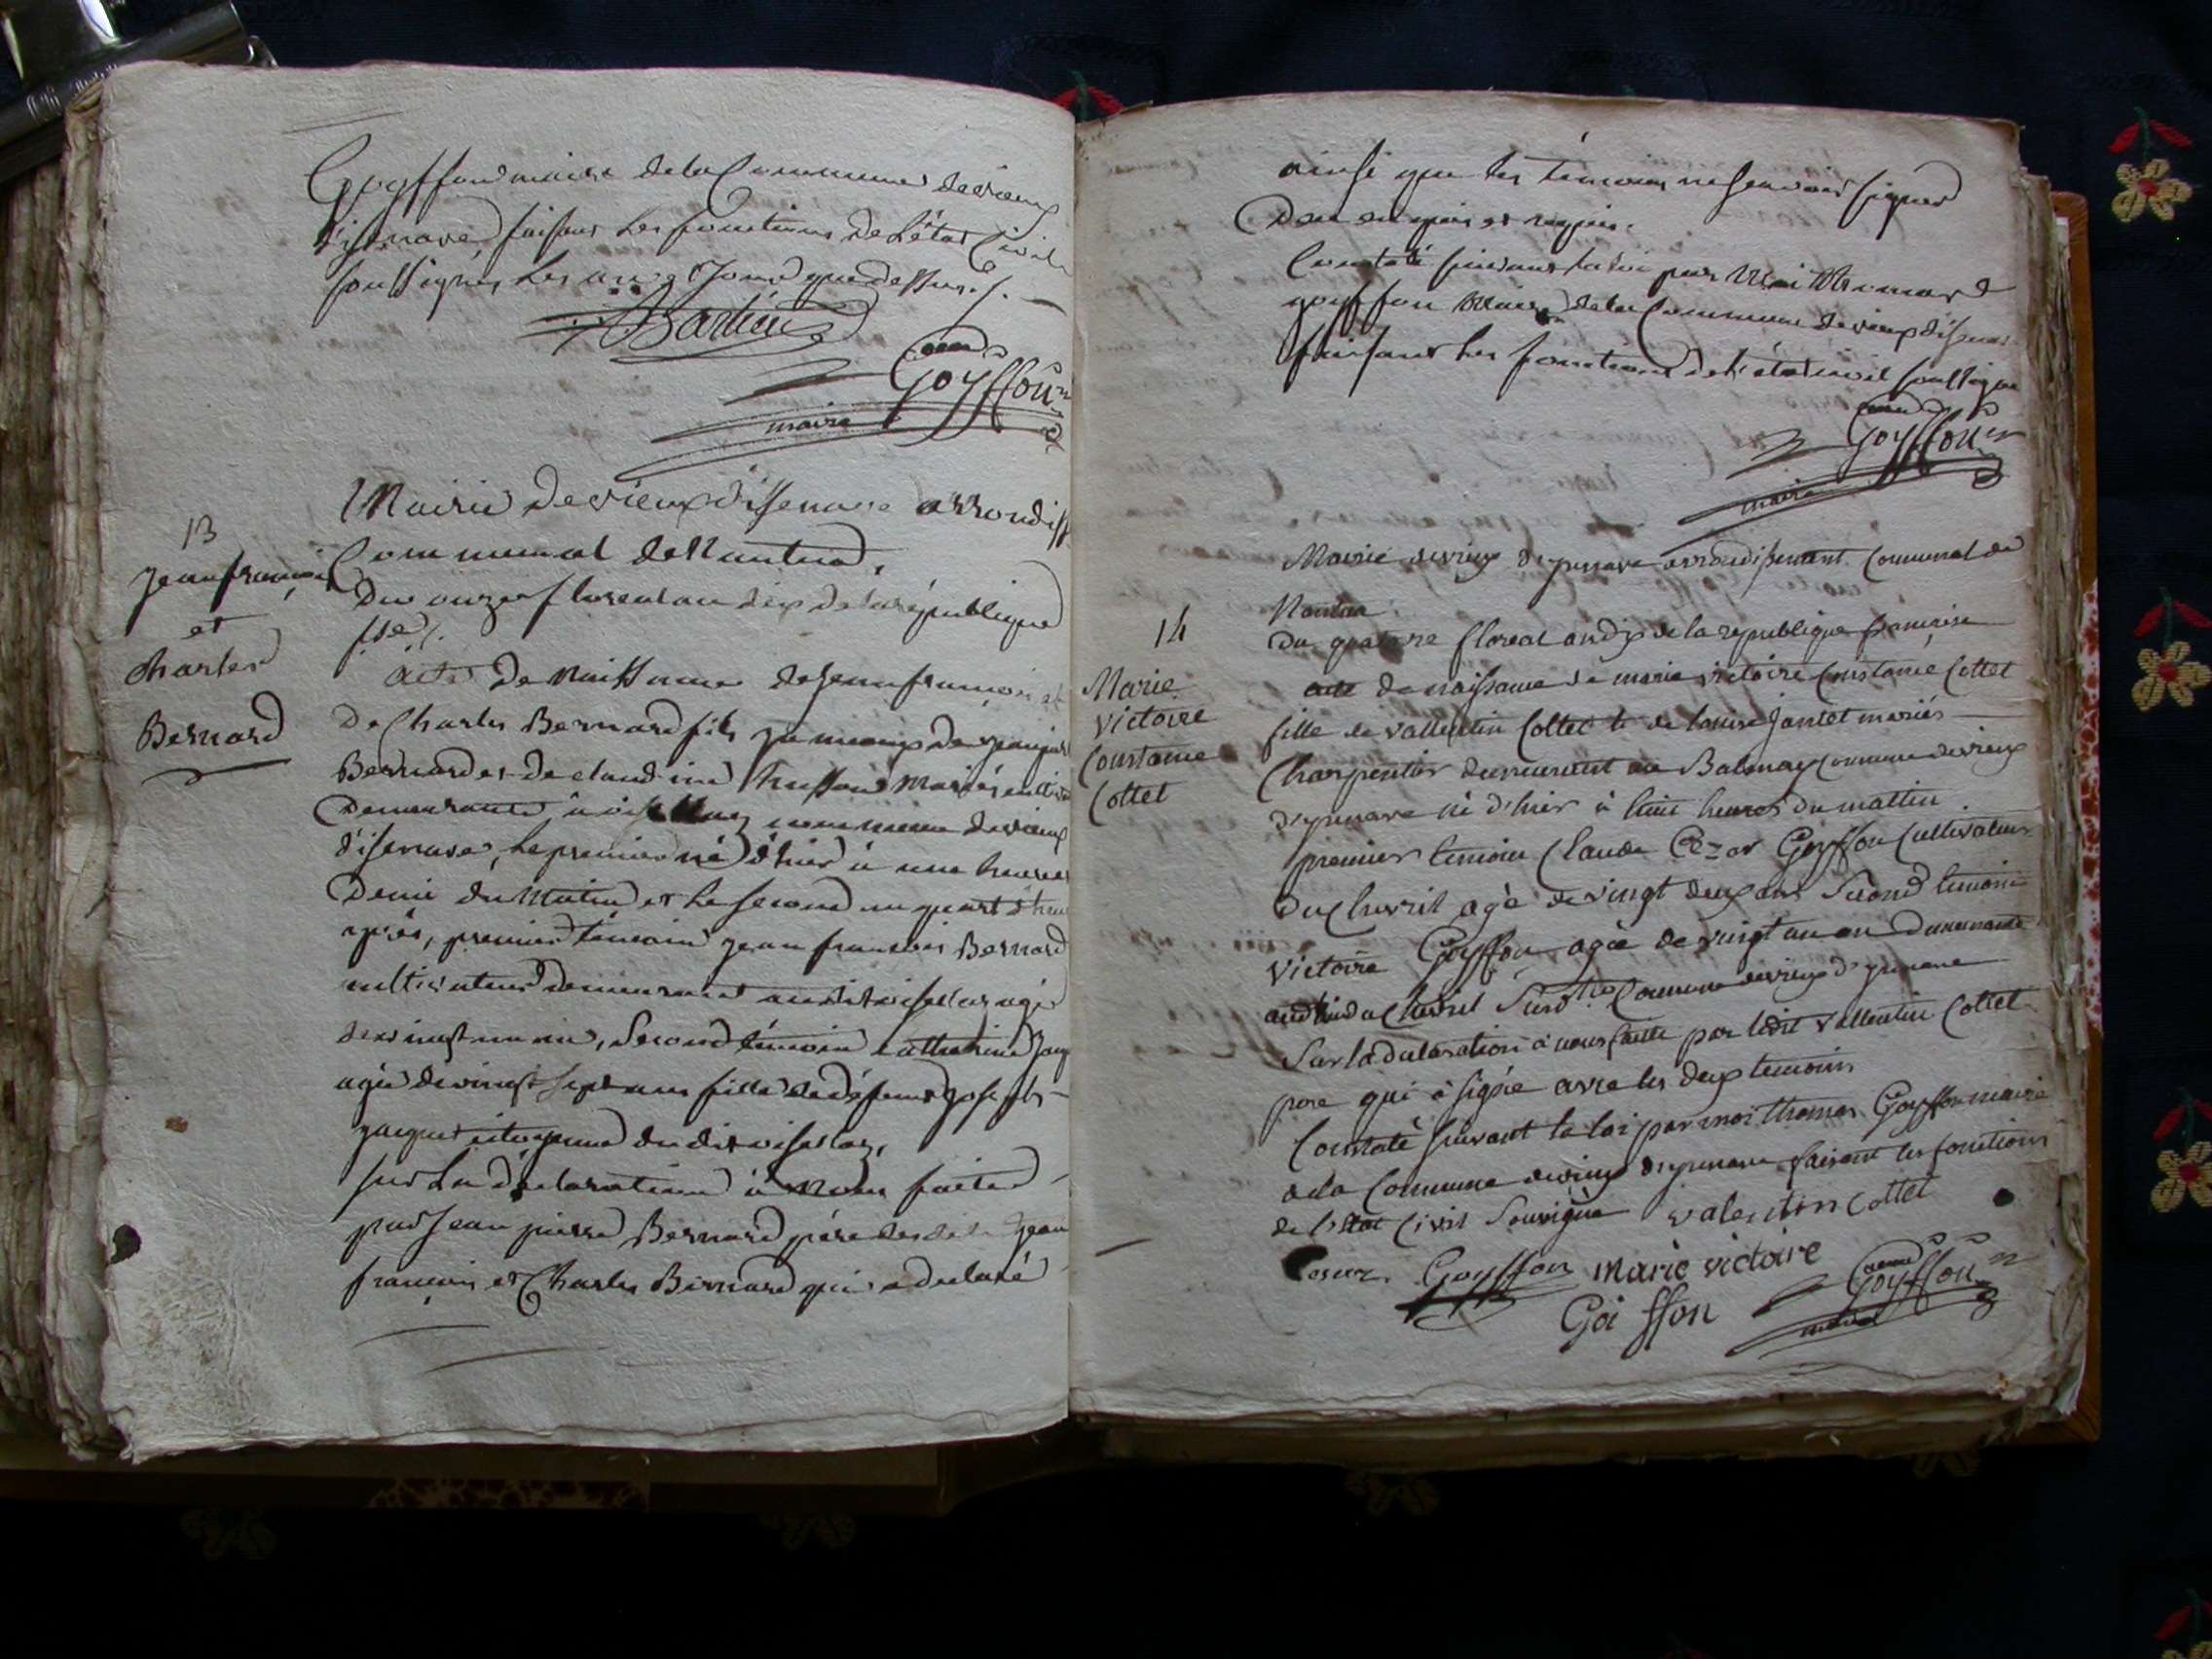 Goyffon maire de la Commune de vieux
d'isenave faisant les fonctions de L'état Civil
soussigné, les an et Jour que dessus.
Goyffon
maire
13
jean françois
et
Charles
Bernard
Mairie de vieux d'issenave arrondiss
Communal de Nantua,
Du onze floreal an dix de la république
fse.
Acte de Naissance de jean françois et
de Charles Bernard fils jumeaux de jean pierre
Bernard et de claudine mariés
demeurants à commune de vieux
d'isenave, le premier né d'hier à une heure et
Demie du Matin et le second un quart d'heure
après, premier témoin jean françois Bernard
cultivateur demeurant audit agé
de, Second témoin Catherine
agée de vingt sept ans fille de défunt joseph
jacquet du dit
sur La déclaration à Nous faite
par jean pierre Bernard père desdits jean
françois et Charles Bernard qui a declaré
ainsi que les témoins ne scavoir signer
De ce enquis et requis.
Constaté suivant la loi par Moi thomas
goyffon Maire de la Commune de vieux d'isenave
faisant les fonctions de l'état civil soussigné
Goyffon
maire
14
Marie
victoire
Constance
Cottet
Mairie de vieux d'yzenave arrondissement Communal de
Nantua
Du quatorze floreal an dix de la republique française
acte de naissance de marie victoire Constance Cottet
fille de vallentin Cottet et de louise Jantet mariés
Charpentier demeurant au Balmay commune de vieux
d'yzenave né d'hier à huit heures du mattin.
premier temoin Claude Cézar Goyffon Cultivateur
du Chevril agé de vingt deux ans Second temoin
victoire Goyffon agée de vingt un an demeurante
audit lieu du Chevril Susdite Commune de vieux d'yzenave
Sur la declaration à nous faitte par ledit vallentin Cottet
pere qui à signé avec les deux temoins
Constaté suivant la loi par moi thomas Goyffon maire
de la Commune de vieux d'yzenave faisant les fonctions
de l'état Civil Sousigné valentin Cottet
Cesar Goyffon marie victoire
Goi ffon
Goyffon
maire